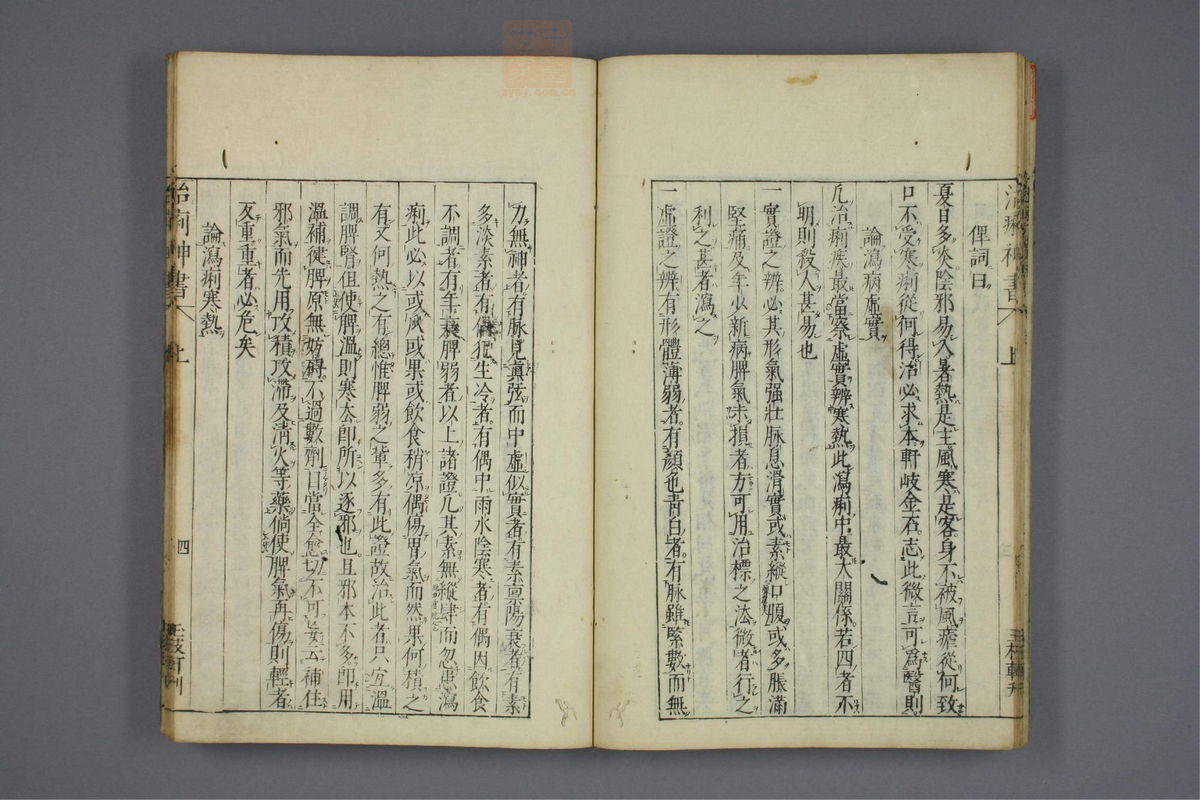 俚詞曰
夏日多从陰邪易入暑熱是主風寒是客身不被風瘧從何致
口不受寒痢從何得治必求本軒岐金石志此微言可爲醫則
論瀉痢虛實
凡治痢疾最當察虛實辨寒熱此瀉痢中最大關係若四者不
明則殺人甚易也
一實證之辨必其形氣强壯脉息滑實或素縱口腹或多脹滿
堅痛及年少新病脾氣未損者方可用治標之法微者行之
利之甚者瀉之
一虛證之辨有形體薄弱者有顏色青白者有脉雖緊數而無
治痢神書
上
力無神者有脉見眞弦而中虛似實者有素禀陽衰者有素
多淡素者有偶犯生冷者有偶中雨水陰寒者有偶因飮食
不調者有年衰脾弱者以上諸證凡其素無縱肆而忽患瀉
痢此必以或風或果或飮食稍凉偶傷胃氣而然果何積之
有又何熱之有總惟脾弱之輩多有此證故治此者只宜溫
調脾腎但使脾溫則寒去即所以逐邪也且邪本不多即用
溫補健脾原無妨碍不過數劑自當全愈切不可妄云補住
邪氣而先用攻積攻滯及淸火等藥倘使脾氣再傷則輕者
反重重者必危矣
論瀉痢寒熱
治痢神書
上
四